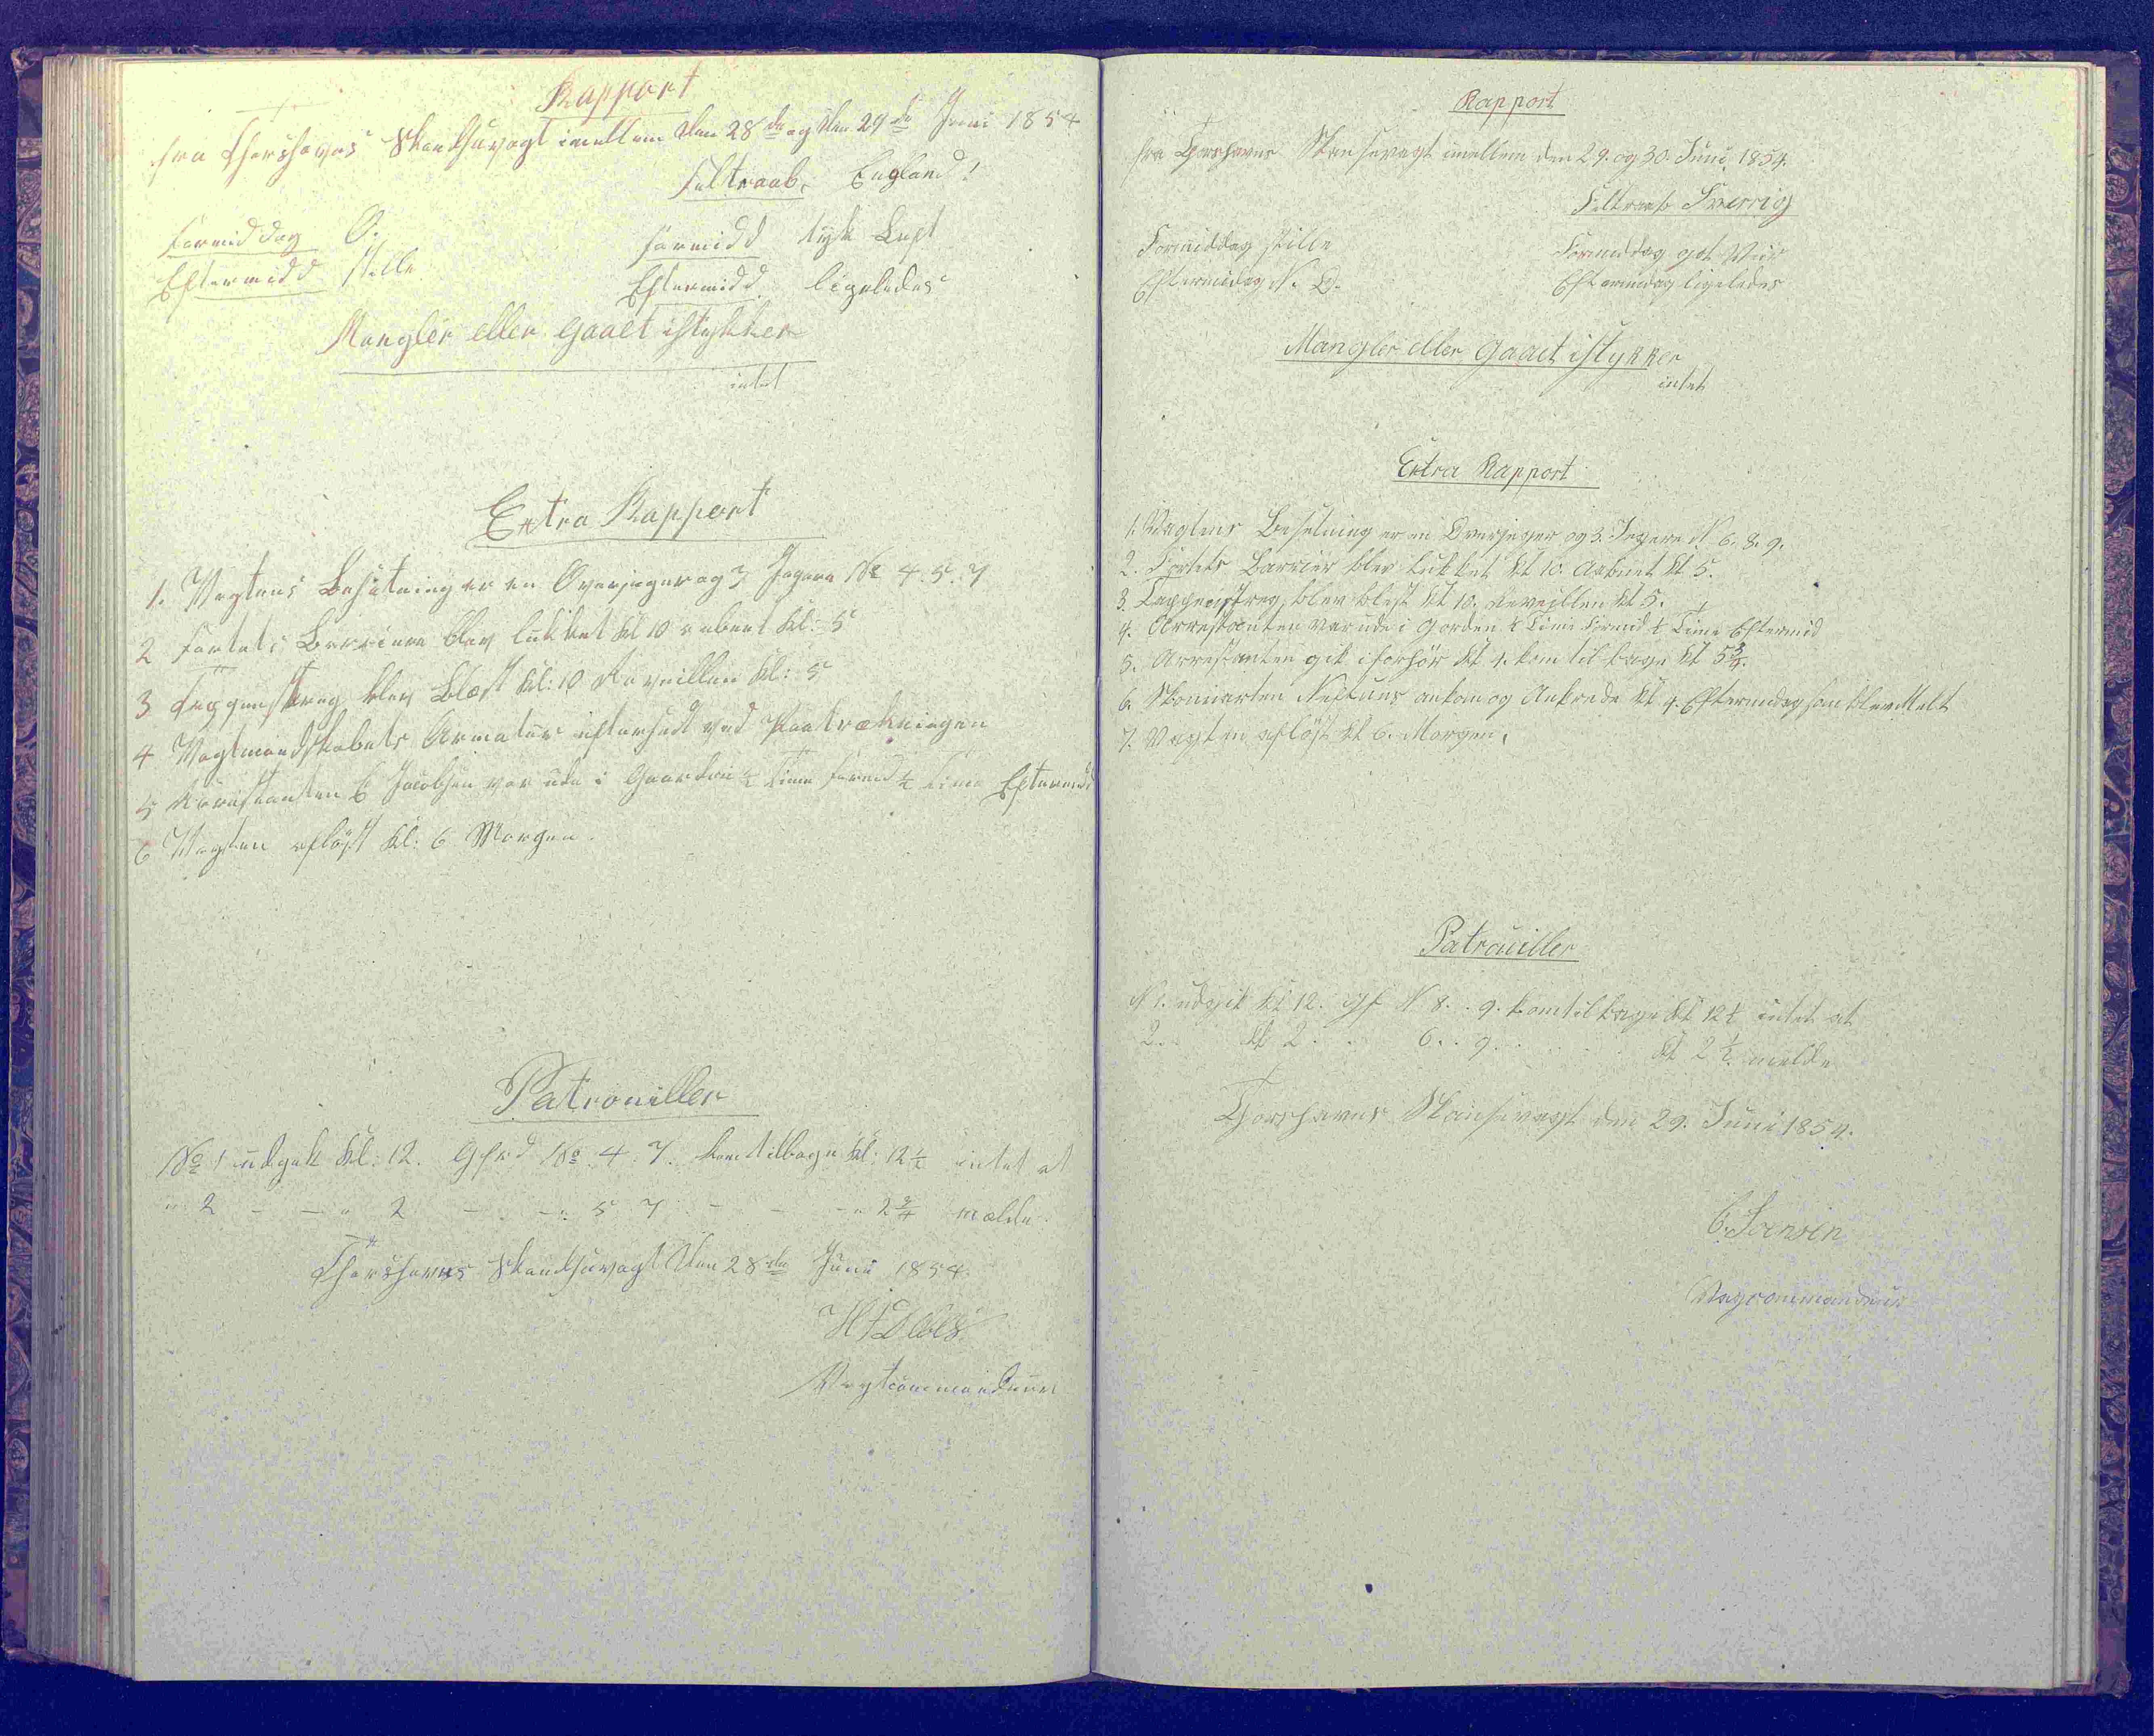 Rapport
fra Thorshavns Skandsevagt imellem den 28de og den 29de Juni 1854
Feltraab: England!
Formiddag O. Formidd tyk Luft
Eftermidd stille Eftermidd ligeledes
Mangler eller gaaet istykker
intet
Extra Rapport
1. Vagtens Besætning er en Overjæger og 3 Jægere No 4. 5. 7
2 Fortets Barriere blev lukket Kl 10 aabnet Kl: 5
3 Tappenstreg blev blæst Kl: 10 Reveillen Kl: 5
4 Vagtmandskabets Armatur efterseet ved Paatrækningen
5 Arrestanten E Jacobsen var ude i Gaarden ½ Time Formd ½ Time Eftermidd
6 Vagten afløst Kl: 6 Morgen.
Patrouiller
No 1 udgik Kl: 12. Gefrd No. 4. 7. kom tilbage Kl: 12½ intet at
" 2 - - " 2 - - " 5 7 - - - " 2¾ melde.
Thorshavns Skandsevagt den 28de Juni 1854.
H Debes
Vagtcommandeur
Rapport
fra Thorshavns Skansevagt imellem den 29. og 30. Juni 1854.
Feltraab Sverrig
Formiddag stille Formidag got Veir
Eftermidag N. O. Eftermidag ligeledes
Mangler eller Gaaet istykker
intet
Extra Rapport
1. Vagtens Besetning er en Overjeger og 3. Jegere N 6. 8. 9.
2. Fortets Barrier blev lukket Kl 10. Aabnet Kl 5.
3. Tappenstreg blev blest Kl 10. Reveillen Kl 5.
4. Arrestanten var ude i Gorden ½ Time Formid ½ Time Eftermid
5. Arrestanten gik i forhör Kl 4. kom tilbage Kl 5¾.
6. Skonnarten Neptuns ankom og Ankrede Kl 4. Eftermidag som blev Melt
7. Vagten aflöst Kl 6. Morgen.
Patrouiller
N 1. udgik Kl 12. gf N 8. . 9. kom tilbage Kl 12½ intet at
2. . Kl 2 . . 6. . 9. . . . . Kl 2½ melde
Thorshavns Skansevagt den 29. Juni 1854.
C. Joensen
Vagcommandeur